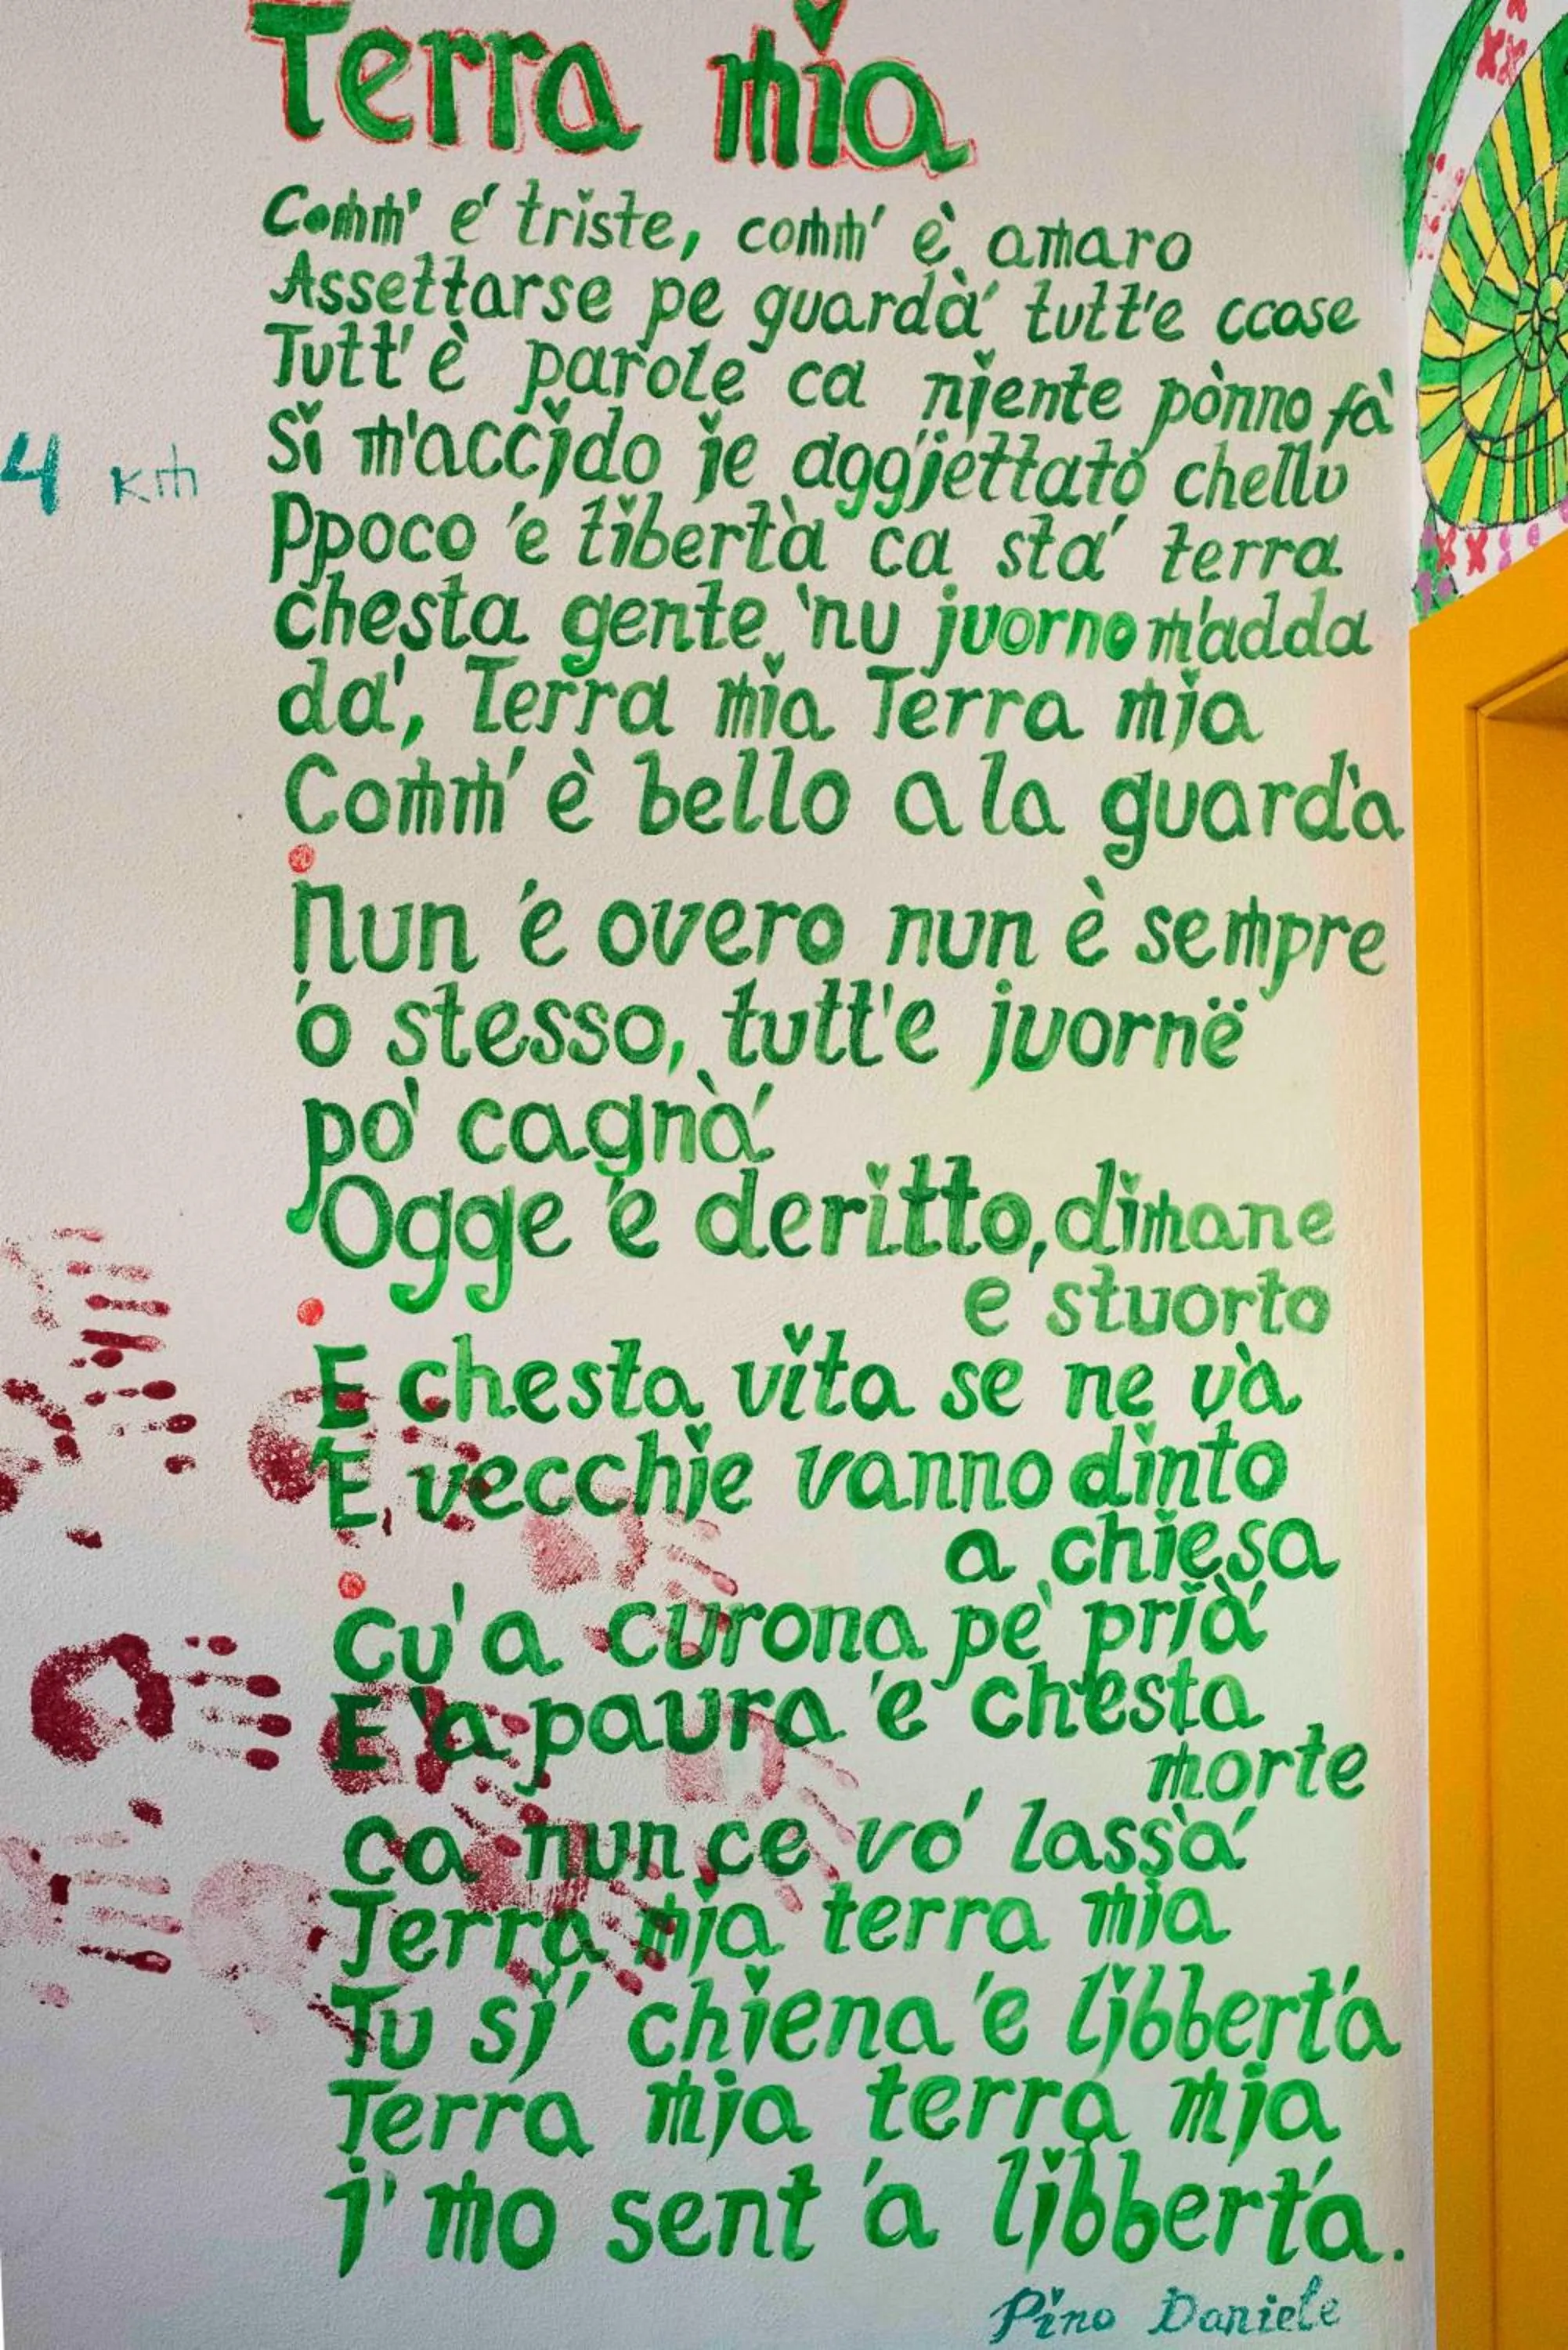 Terra mia
Comm' e' triste, comm' è amaro
Assettarse pe guardà' tutt'e ccose
Tutt' è parole ca niente pònno fà
4 km
Si m'accido je agg'jettato chellu
Ppoco 'e libertà ca sta' terra
chesta gente 'nu juorno m'adda
da', Terra mia Terra mia
Comm' è bello a la guardà
Nun 'e overo nun è sempre
'o stesso, tutt'e juorne
po' cagnà'
Ogge 'e deritto, dimane
e' stuorto
E chesta vita se ne và
'E vecchie vanno dinto
a chiesa
Cu'a curona pe' prià'
E 'a paura 'e chesta
morte
ca nun ce vo' lassà'
Terra mia terra mia
Tu si' chiena 'e libbertà
Terra mia terra mia
i' mo sent 'a libbertà.
Pino Daniele